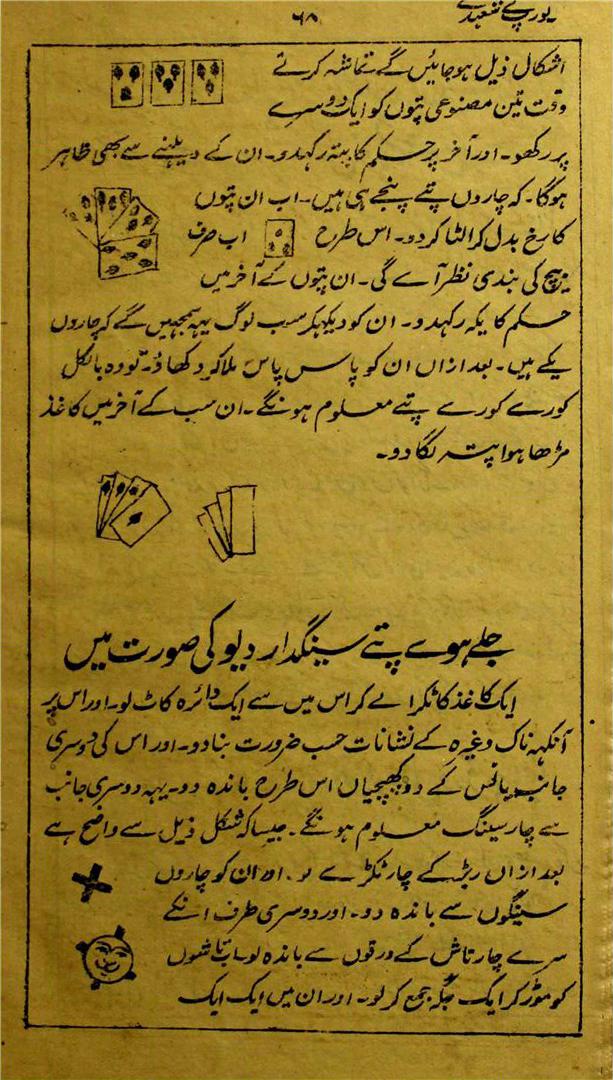 یورپ کے شعبدے
۶۸
اشکال ذیل ہوجائیں گے۔ تماشہ کرتے
وقت تین مصنوعی پتوں کو ایک دوسرے
پر رکھو۔ اور آخر پر حکم کا پتہ رکھدو۔ ان کے دیکھنے سے بھی ظاہر
ہوگا۔ کہ چاروں پتے پنجے ہی ہیں۔ اب ان پتوں
کا رخ بدل کر الٹا کر دو۔ اس طرح اب صرف
بیچ کی بندی نظر آے گی۔ ان پتوں کے آخر میں
حکم کا یکہ رکھدو۔ ان کو دیکھکر سب لوگ یہہ سمجہیں گے کہ چاروں
یکے ہیں۔ بعد ازاں ان کو پاس پاس ملا کر دکھاؤ۔ تو وہ بالکل
کورے کورے پتے معلوم ہونگے۔ ان سب کے آخر میں کاغذ
مڑھا ہوا پتہ لگا دو۔
جلے ہوے پتے سینگدار دیو کی صورت میں
ایک کاغذ کا ٹکرا لے کر اس میں سے ایک دائرہ کاٹ لو۔ اور اس پر
آنکہہ ناک وغیرہ کے نشانات حسب ضرورت بنا دو۔ اور اس کی دوسری
جانب بانس کے دو کھپچیاں اس طرح باندہ دو۔ یہہ دوسری جانب
سے چار سینگ معلوم ہونگے۔ جیسا کہ شکل ذیل سے واضح ہے
بعد ازاں ربڑ کے چار ٹکڑے لو۔ اور ان کو چاروں
سینگوں سے باندہ دو۔ اور دوسری طرف انکے
سرے چار تاش کے ورقوں سے باندہ لو۔ اب تاشوں
کو موڑ کر ایک جگہ جمع کر لو۔ اور ان میں ایک ایک